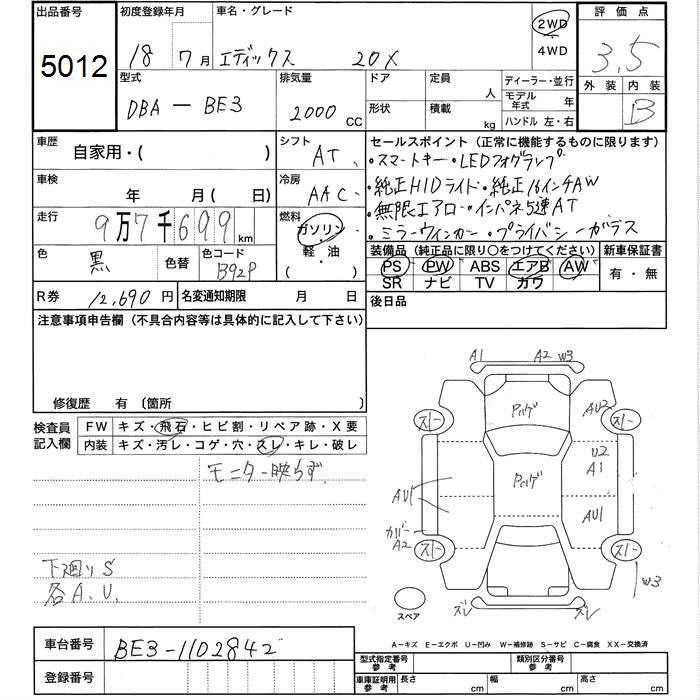 出品番号 初度登録年月 車名・グレード 評価点
5012 18 7月 エディックス 20X 2WD 4WD 3.5
型式 排気量 ドア 定員 人 ディーラー・並行 外装 内装
DBA - BE3 2000 CC 形状 積載 kg モデル年式 年 ハンドル 左・右 B
車歴 自家用・( ) シフト AT セールスポイント (正常に機能するものに限ります)
・スマートキー・LEDフォグランプ
車検 年 月 ( 日) 冷房 AAC ・純正HIDライト・純正16インチAW
走行 9万7千699km 燃料 ガソリン 軽・油 ・無限エアロ・インパネ5速AT
・ミラーウィンカー・プライバシーガラス
色 黒 色替 色コード B92P
装備品 (純正品に限り〇をつけてください) 新車保証書
PS PW ABS エアB AW 有・無
SR ナビ TV カワ
R券 12,690 円 名変通知期限 月 日 後日品
注意事項申告欄 (不具合内容等は具体的に記入して下さい)
修復歴 有 (箇所 )
検査員記入欄 FW キズ・飛石・ヒビ割・リペア跡・X要
内装 キズ・汚レ・コゲ・穴・スレ・キレ・破レ
モニター映らず
下廻りS
各A.U.
A1 A2 W3
スレー Pハゲ AU2 スレー
U2
A1
Pハゲ
AU1 AU1
カバー
A2 スレー スレー
W3
スペア ズレ ズレ
A-キズ E-エクボ U-凹み W-補修跡 S-サビ C-腐食 XX-交換済
車台番号 BE3-1102842
登録番号
型式指定番号 参考 類別区分番号 参考
車庫証明用 参考 長さ cm 幅 cm 高さ cm